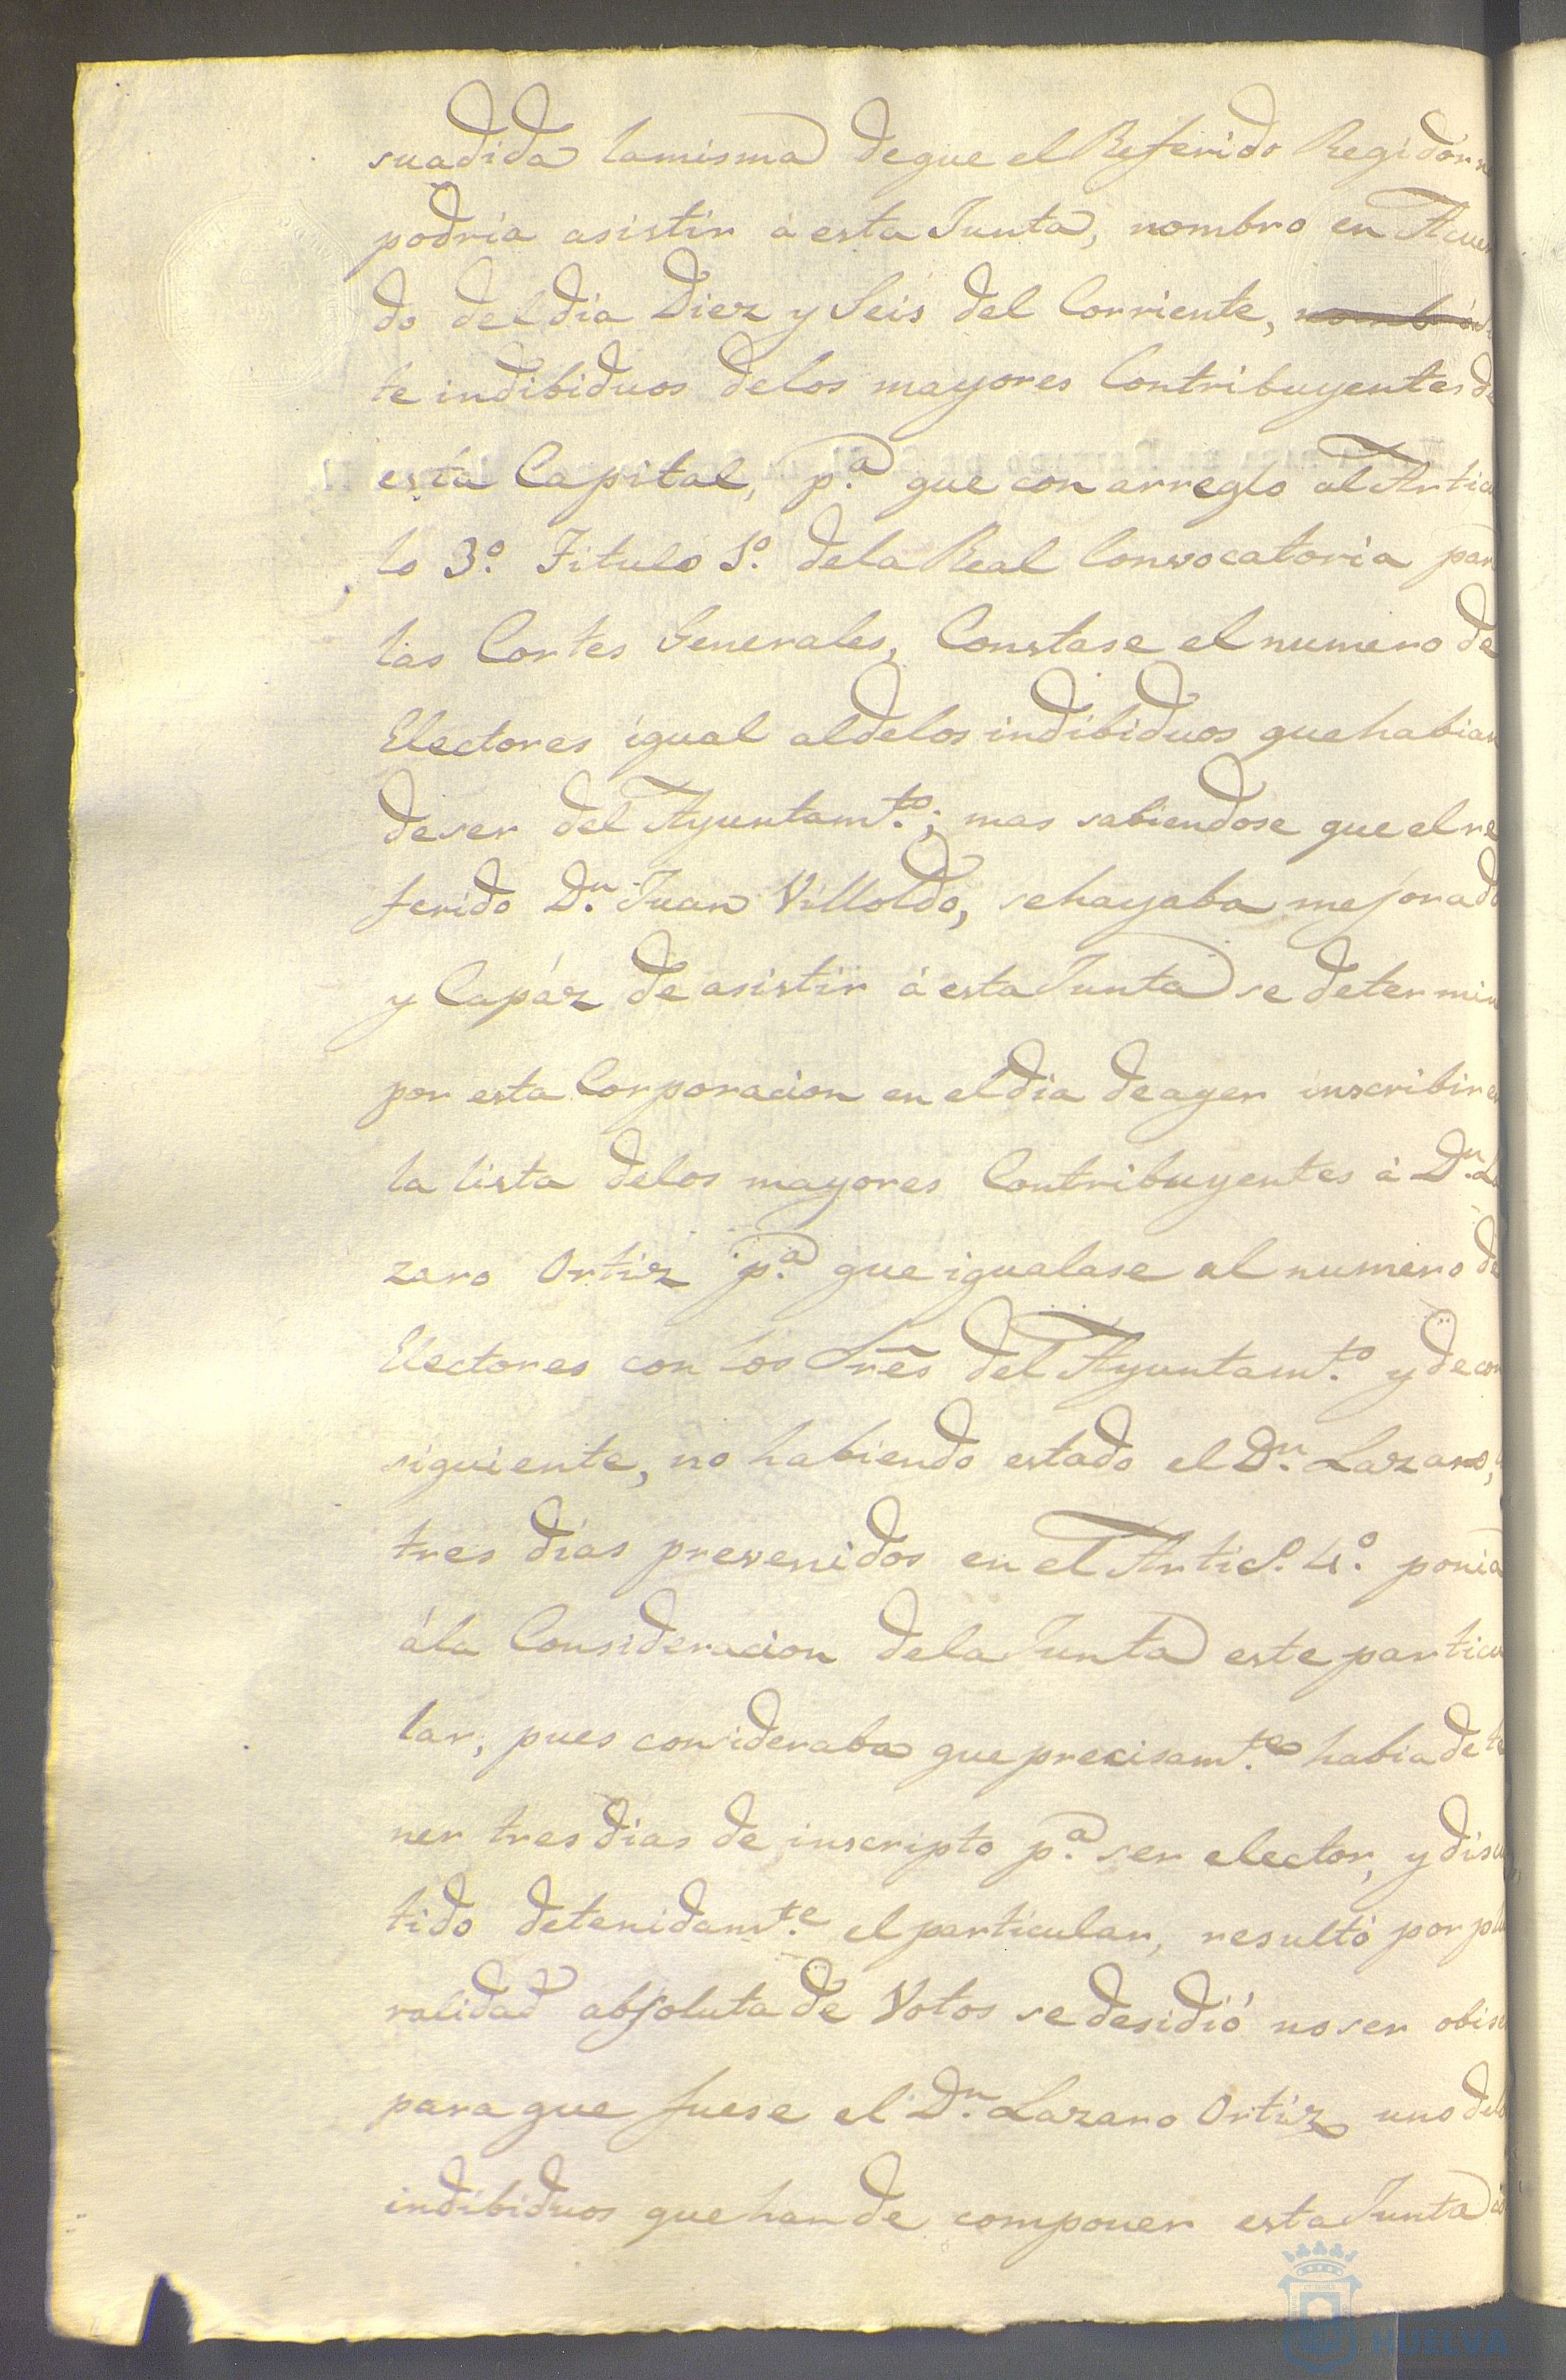 suadida lamisma deque el Referido Regidor n
podria asistir á esta Junta, nombro en Acuer
do del dia Diez y Seis del Corriente,
te indibiduos delos mayores Contribuyentes de
esta Capital, p.a que con arreglo al Articu
lo 3.o Titulo 1.o dela Real Convocatoria par
las Cortes Generales, Constase el numero de
Electores igual aldelos indibiduos quehabian
deser del Ayuntam.to; mas sabiendose que el re
ferido D.n Juan Villoldo, sehayaba mejorado
y Capáz de asistir á esta Junta se determin
por esta Corporacion en eldia deayer inscribir en
la lista delos mayores Contribuyentes á D.n La
zaro Ortiz p.a que igualase al numero de
Electores con los Sres del Ayuntam.to y decon
siguiente, no habiendo estado el D.n Lazaro,
tres dias prevenidos en el Artic.o 4.o ponia
ála Consideracion dela Junta este particu
lar, pues consideraba que precisam.te habia de te
ner tres dias de inscripto p.a ser elector, y discu
tido detenidam.te el particular, resultó por plu
ralidad absoluta de Votos se desidió no ser obise
para que fuese el D.n Lazaro Ortiz uno delo
indibiduos que han de componer esta Junta
HUELVA